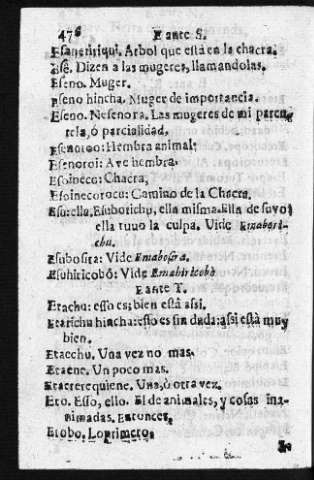 476 Eante S.
Esanenriqui. Arbol que està en la chacra.
Esè. Dizen a las mugeres, llamandolas.
Eseno. Muger.
Eseno hincha. Muger de importancia.
Eseno. Nesenora. Las mugeres de mi paren
tela, ò parcialidad.
Esenoroo: Hembra animal:
Esenoroi: Ave hembra.
Esoineco: Chacra,
Esoinecorocu: Camino de la Chacra.
Esu: ella. Esuborichu, ella misma. Ella de suvo
ella tuvo la culpa. Vide Emabori-
chu.
Esubosra: Vide Emabosra.
Esuhiricobò: Vide Emahiricobò
Eante T.
Etachu: esso es: bien està assi.
Etarichu hincha: esso es sin duda: assi està muy
bien.
Etacchu. Una vez no mas.
Etaene. Un poco mas.
Etacrerequiene. Una, ò otra vez.
Eto. Esso, ello. El de animales, y cosas ina-
nimadas. Entonces,
Etobo. Lo primero,